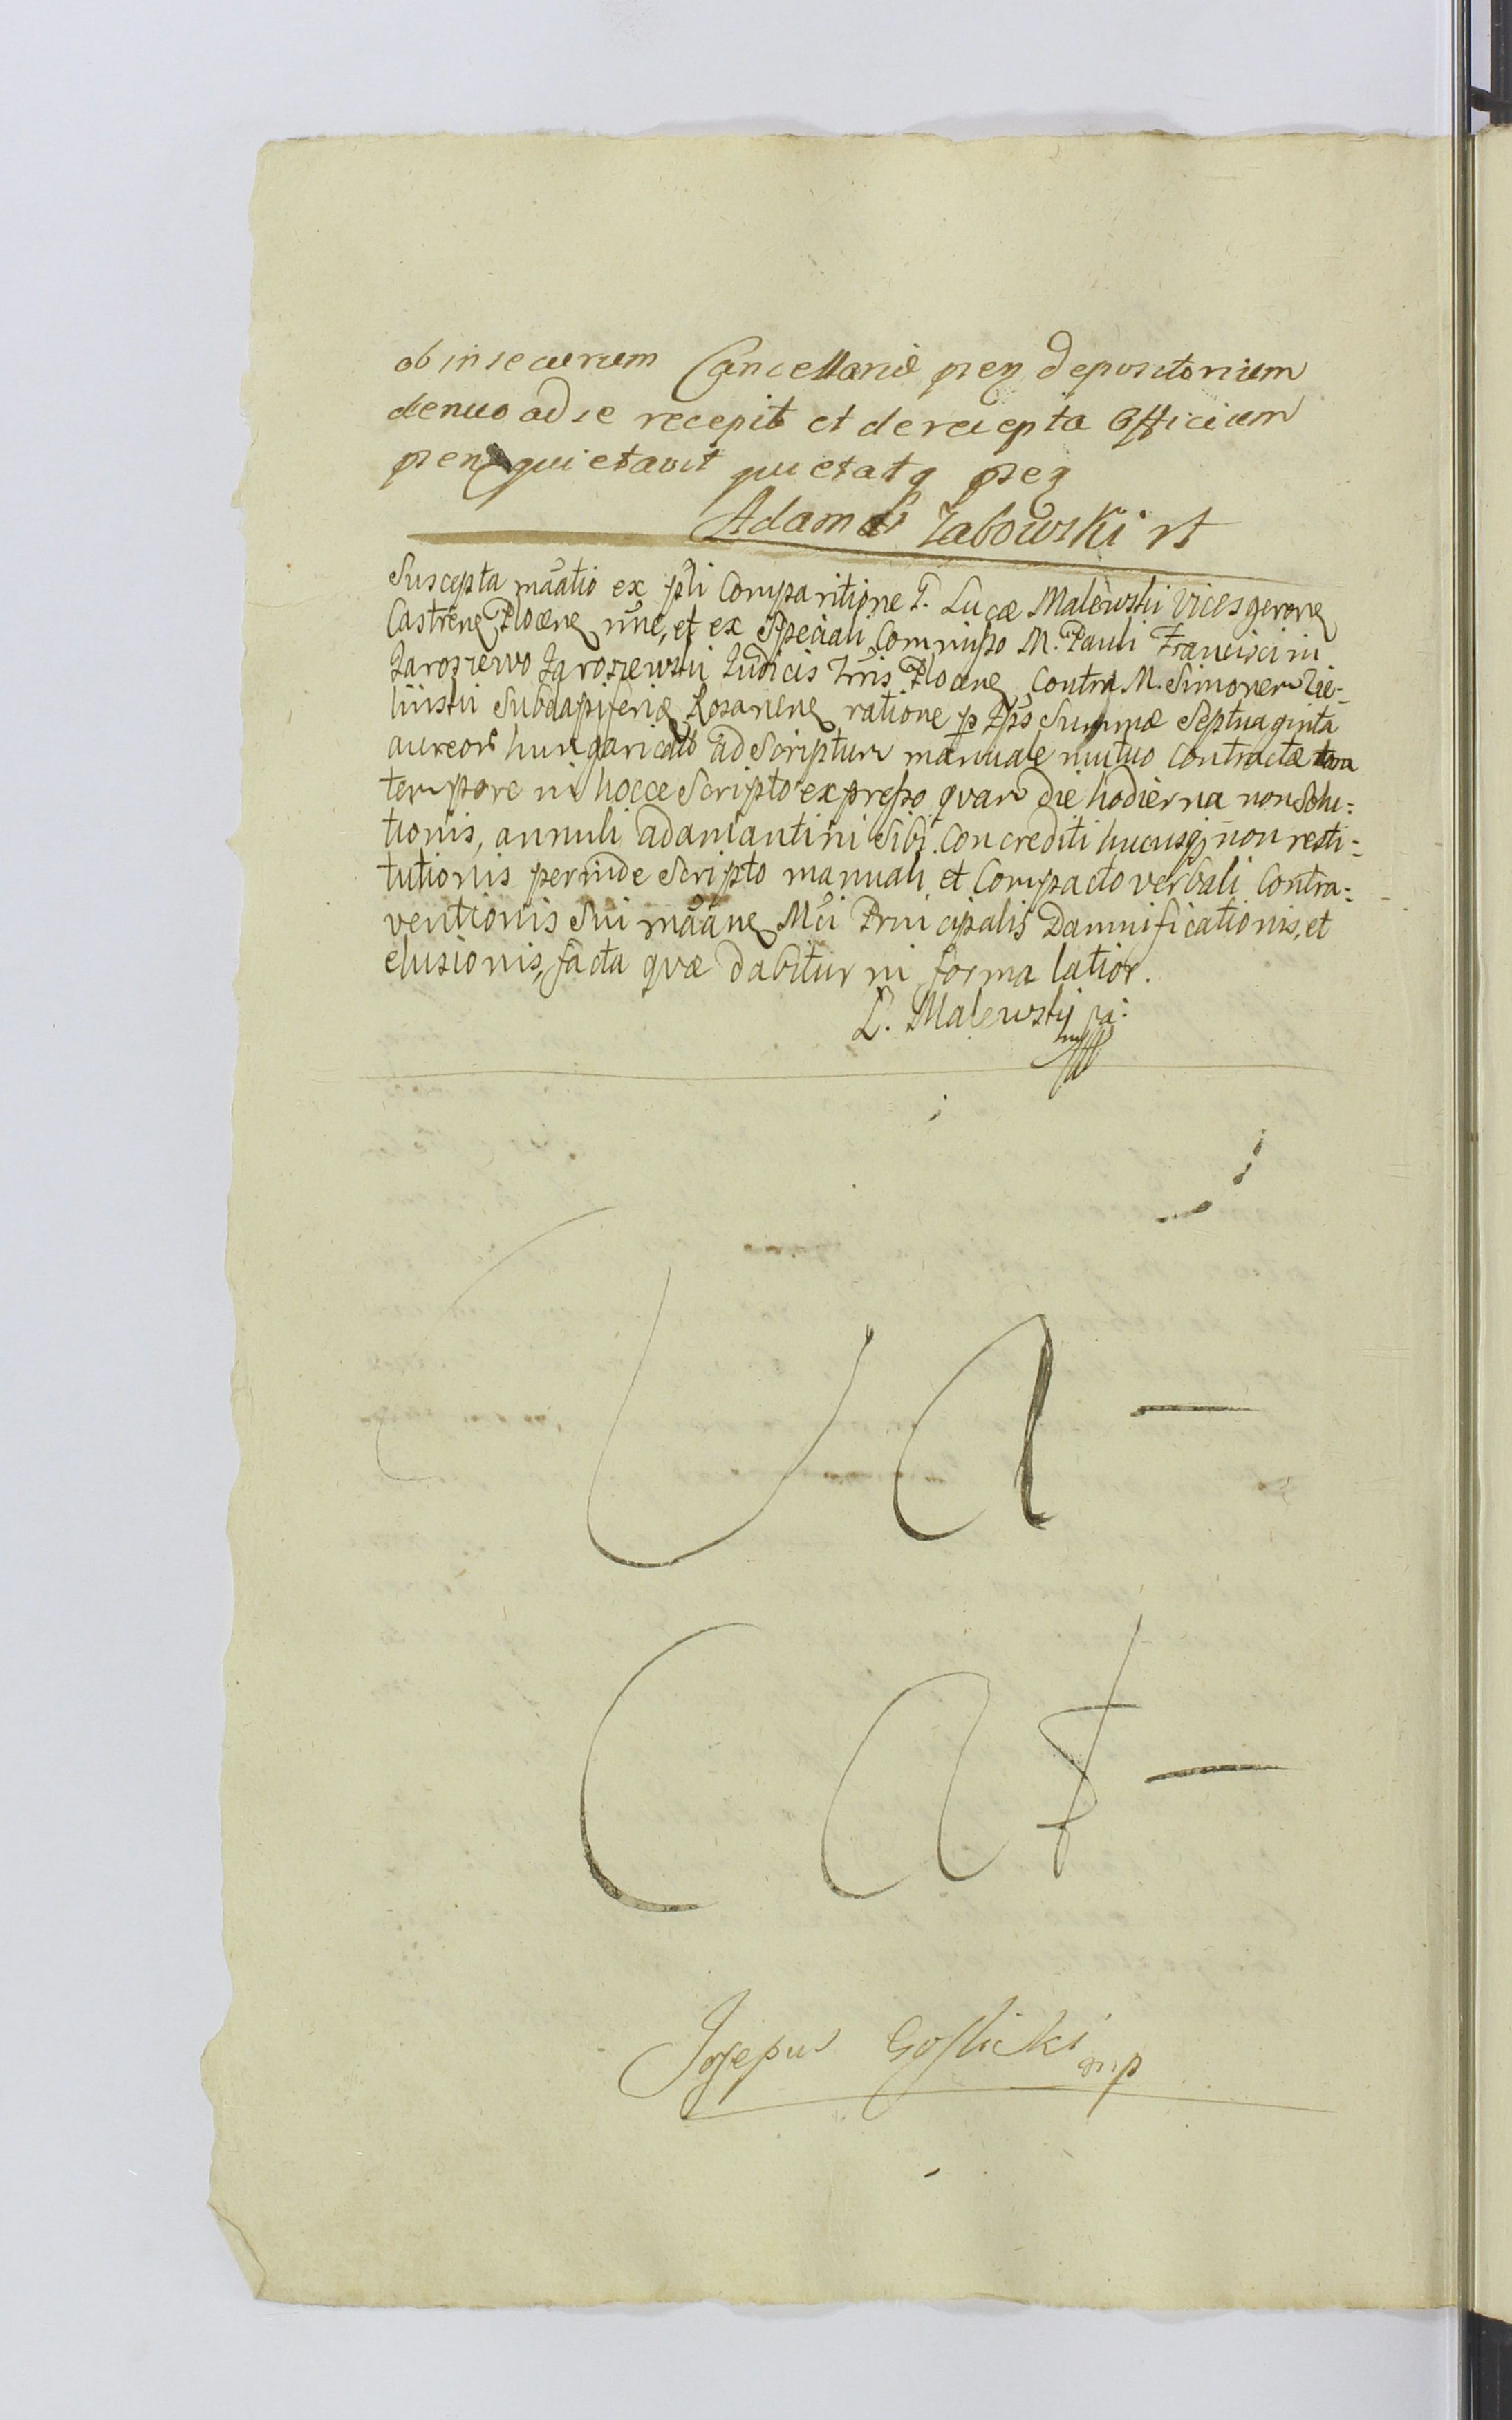 ob insecurum Cancellariæ pñeg depositorium
denuo ad se recepit et de recepta Officium
pñeng quietavit quietatq pñeg
Adam Zabowski
Suscepta mãatio ex pñli Comparitione G. Lucæ Malewski Vicesgereng
Castreng Ploceng nunc, et ex Speciali Commisso M. Pauli Francisci in
Jaroszewo Jaroszewski Judicis Trris Ploceng Contra M. Simonem Zie-
linski Subdapiferiæ Rosaneng ratione Summæ Septuaginta
aureor hungaricalo ad Scriptum manuale mutuo Contractæ
tempore in hocce Scripto expresso quam die hodierna non Solu=
tionis, annuli adamantini Sibi Concrediti hucusq non resti=
tutionis perinde Scripto manuali et Compacto verbali Contra=
ventionis Sui mãaneg Mci Principalis Damnificationis, et
elusionis, facta quæ dabitur in forma latior.
L. Malewski
Va-
Cat-
Josepus Goslicki mp